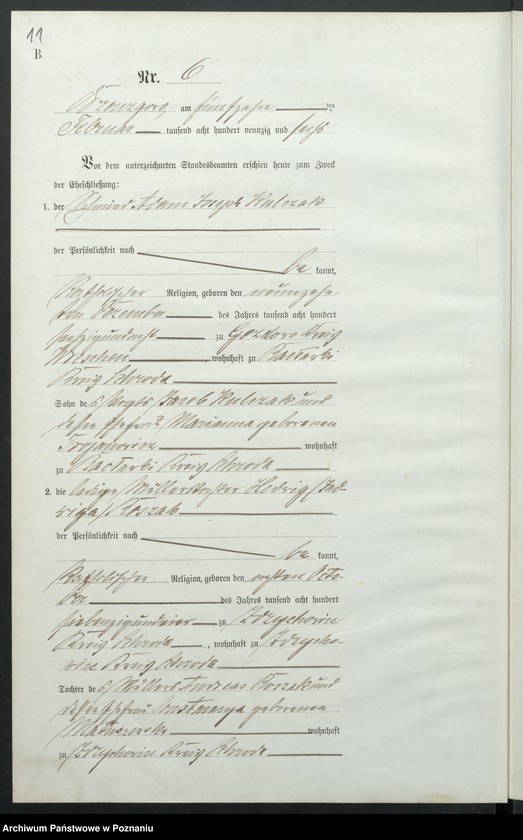 11
B.
Nr. 6
am fünfzehn ten
Februar tausend acht hundert neunzig und sechs
Vor dem unterzeichneten Standesbeamten erschien heute zum Zweck
der Eheschließung:
1. der Schmied Adam Joseph Kulczak
der Persönlichkeit nach
be kannt,
katholischer Religion, geboren den neunzehn-
ten Dezember des Jahres tausend acht hundert
sechzigundacht zu Gozdowo Kreis
Wreschen, wohnhaft zu
Kreis Schroda
Sohn des Vogts Jacob Kulczak und
dessen Ehefrau Marianna geborenen
wohnhaft
zu Kreis Schroda
2. die ledige Müllerstochter Hedwig (Jad-
wiga) Koszak
der Persönlichkeit nach
be kannt,
katholischer Religion, geboren den ersten Octo-
ber des Jahres tausend acht hundert
siebenzigundvier zu Zdzychowice
Kreis Schroda, wohnhaft zu Zdzycho-
wice Kreis Schroda
Tochter des Müllers Andreas Koszak und
dessen Ehefrau geborenen
wohnhaft
zu Zdzychowice Kreis Schroda
Archiwum Państwowe w Poznaniu